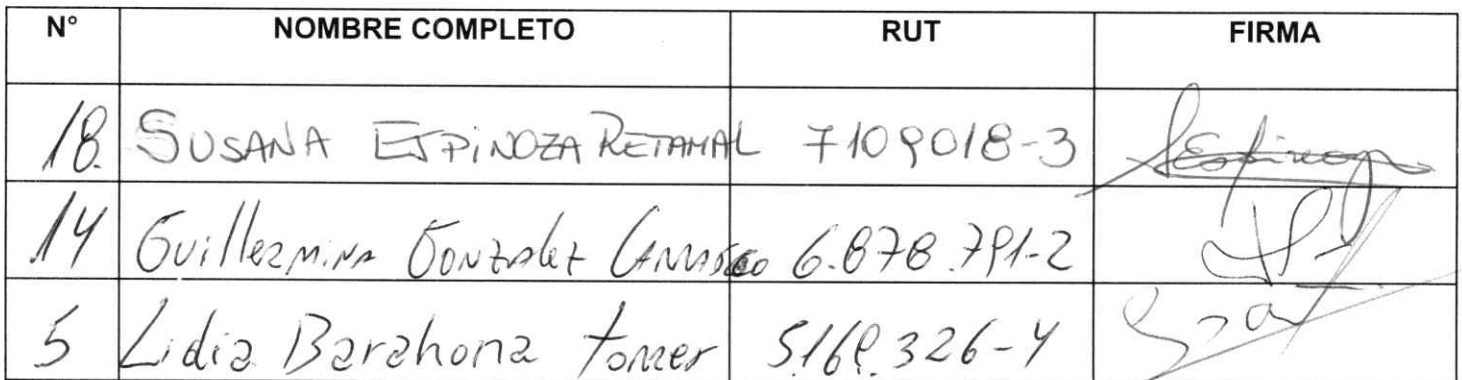 N° NOMBRE COMPLETO RUT FIRMA
18. SUSANA ESPINOZA RETAMAL 7109018-3
14 Guillermina Gonzalez 6.878.791-2
5 Lidia Barahona 5.169.326-4